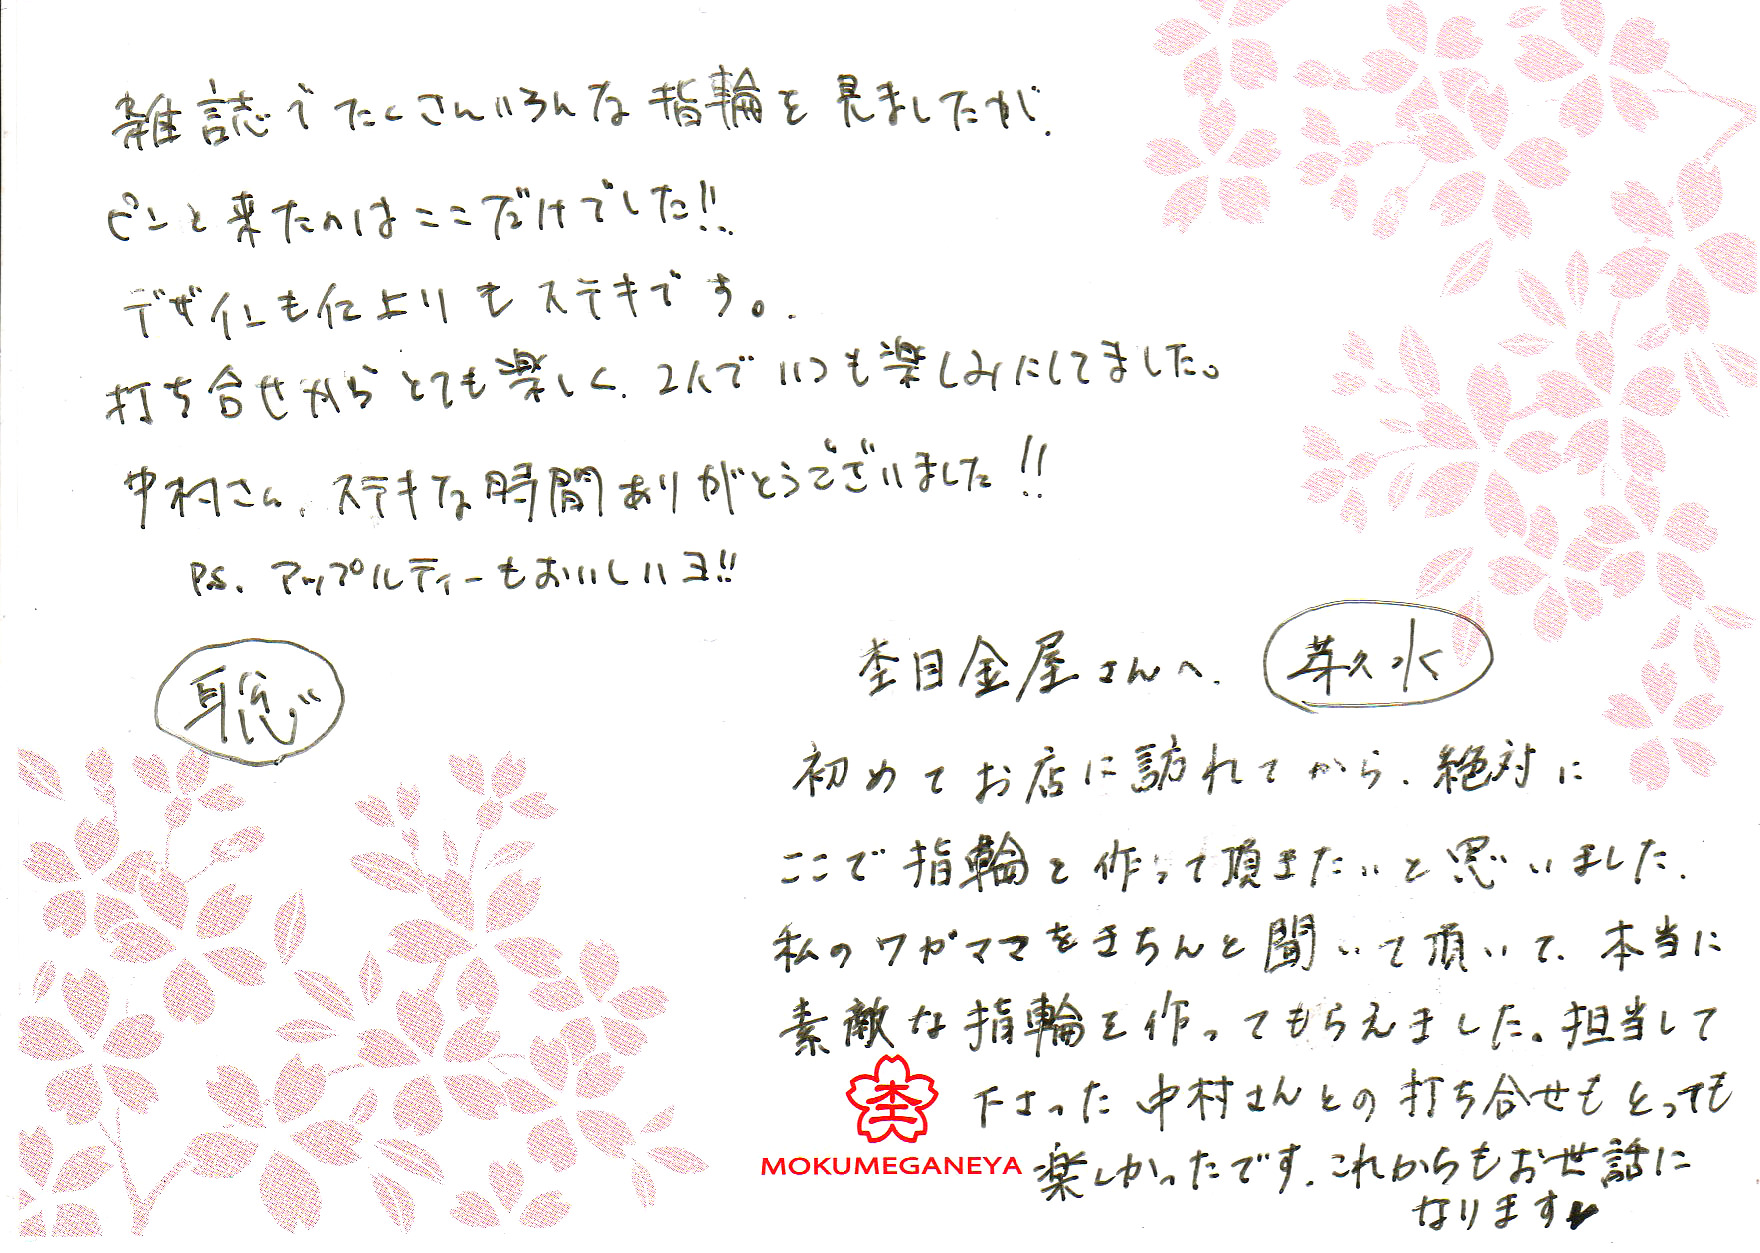 雑誌でたくさんいろんな指輪を見ましたが、
ピンと来たのはここだけでした!!
デザインも仕上りもステキです。
打ち合せからとても楽しく、2人でいつも楽しみにしてました。
中村さん、ステキな時間ありがとうございました!!
P.S. アップルティーもおいしいヨ!!
聡
杢目金屋さんへ、
芽久水
初めてお店に訪れてから、絶対に
ここで指輪を作って頂きたいと思いました。
私のワガママをきちんと聞いて頂いて、本当に
素敵な指輪を作ってもらえました。担当して
下さった中村さんとの打ち合せもとっても
楽しかったです。これからもお世話に
なります♥
杢
MOKUMEGANEYA